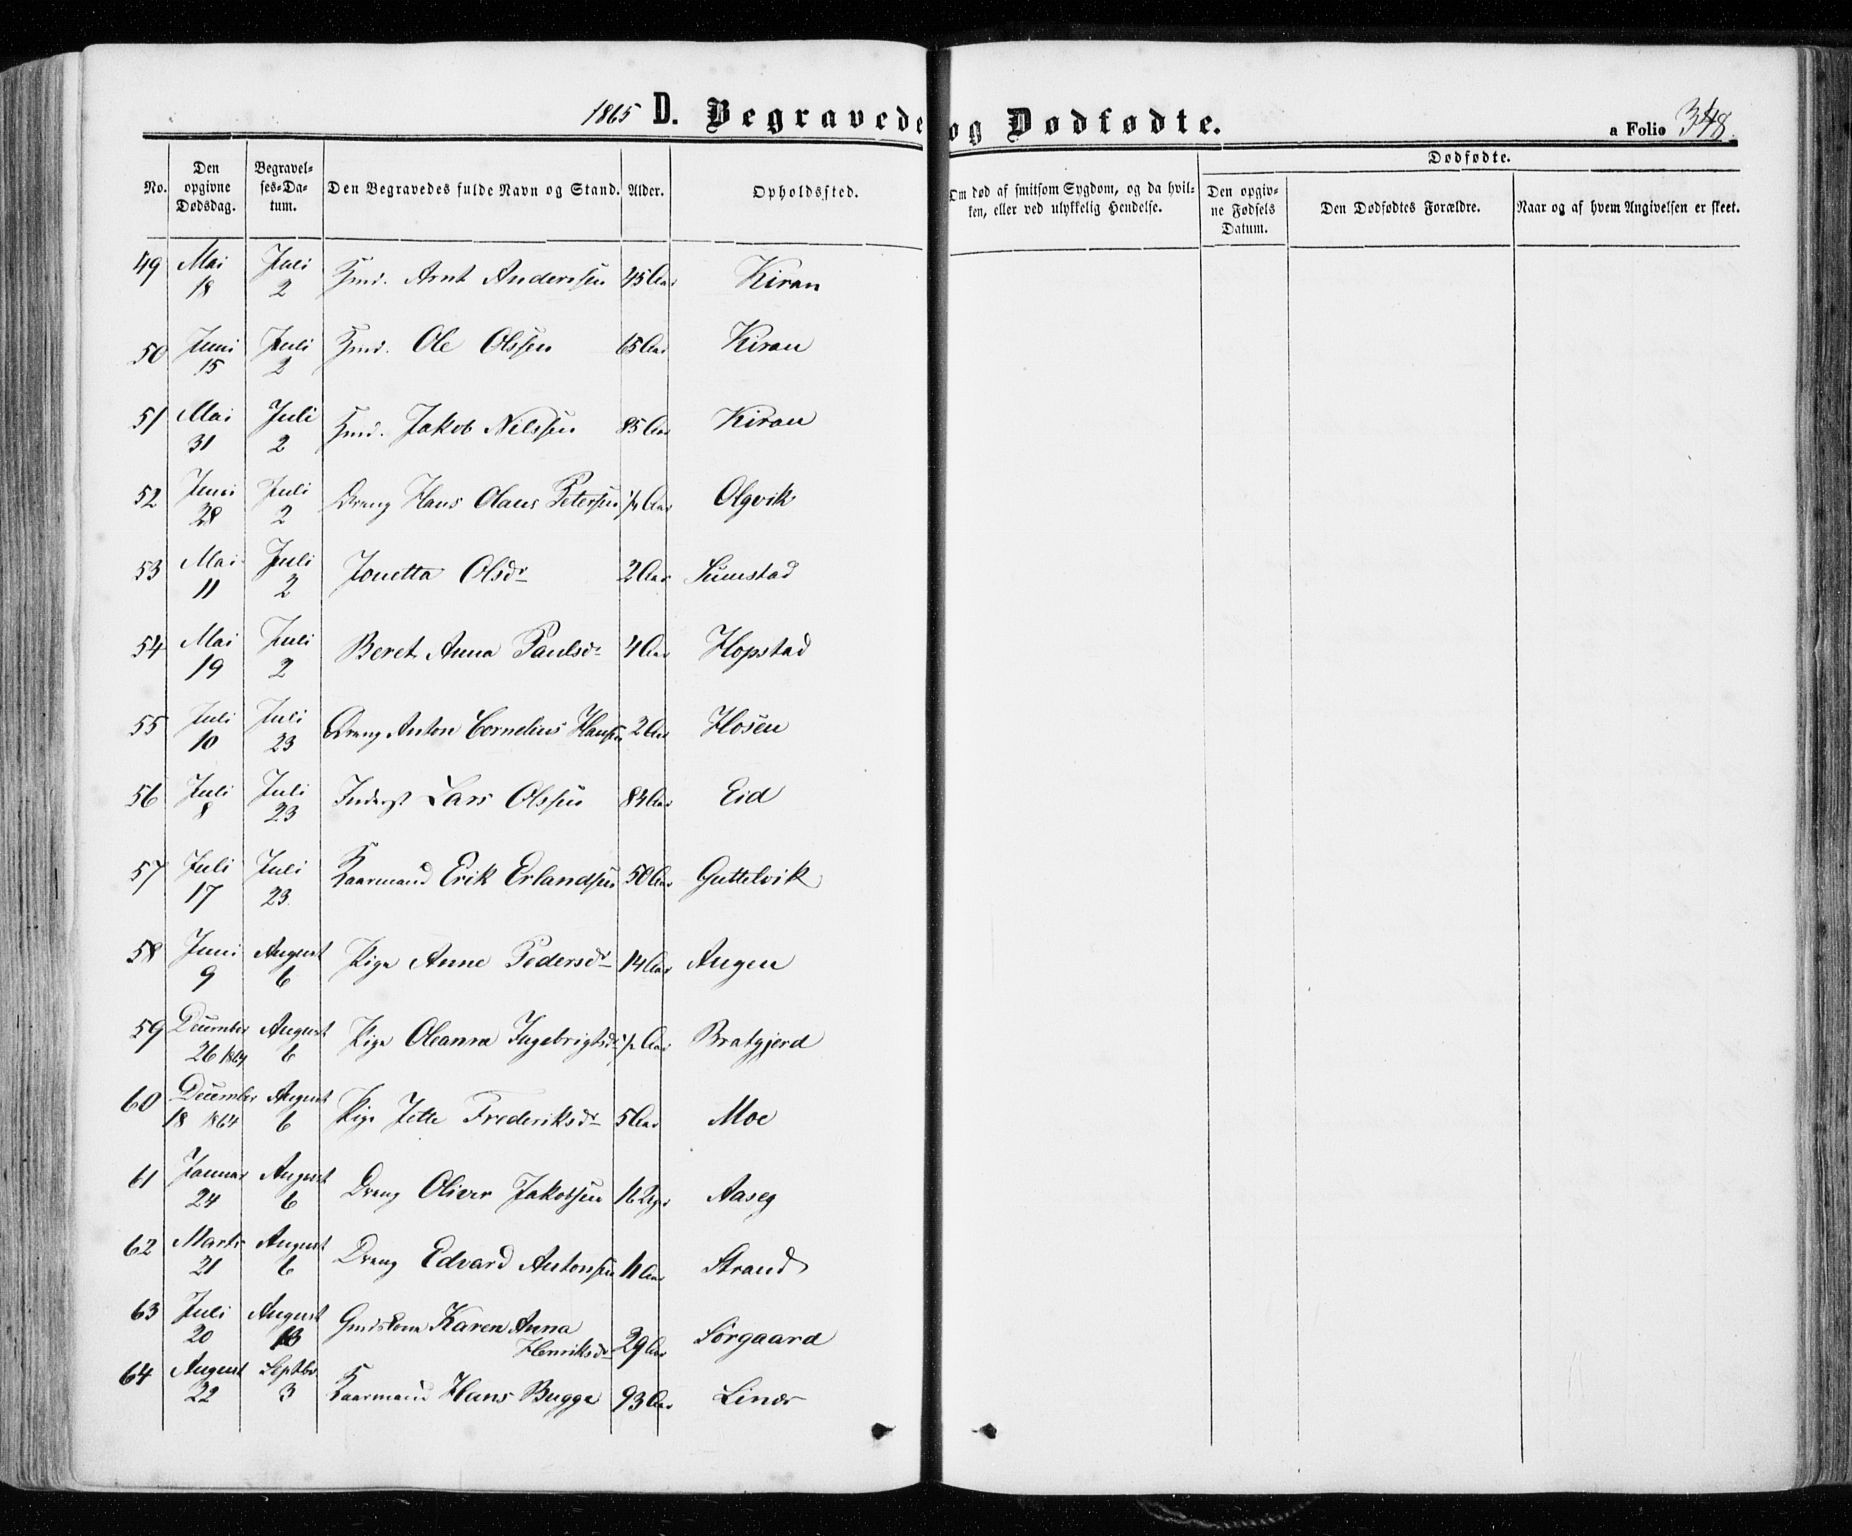 1865 D. Begravede og Dødfødte. a Folio 348.
No. Den opgivne Dødsdag. Begravelses-Datum. Den Begravedes fulde Navn og Stand. Alder. Opholdssted. Om død af smitsom Sygdom, og da hvilken, eller ved ulykkelig Hendelse. Dødfødte. Den opgivne Fødsels Datum. Den Dødfødtes Forældre. Naar og af hvem Angivelsen er skeet.
49 Mai 18 Juli 2 Gmd. Arnt Anderssen 45 Aar Kiran
50 Juni 15 Juli 2 Gmd. Ole Olssen 65 Aar Kiran
51 Mai 31 Juli 2 Gmd. Jakob Nilssen 85 Aar Kiran
52 Juni 28 Juli 2 Dreng Hans Olaus Petersen 1/4 Aar Olgvik
53 Mai 11 Juli 2 Jonetta Olsdr 2 Aar Sumstad
54 Mai 19 Juli 2 Beret Anna Paulsdr 4 Aar Hopstad
55 Juli 10 Juli 23 Dreng Anton Cornelius Hansen 2 Aar Hosen
56 Juli 8 Juli 23 Inderst Lars Olssen 84 Aar Eid
57 Juli 17 Juli 23 Kaarmand Erik Erlandsen 50 Aar Guttelvik
58 Juni 9 August 6 Pige Anne Pedersdr 14 Aar Angen
59 December 26 1864 August 6 Pige Oleanna Ingebrigtsdr 1/2 Aar Bratgjerd
60 December 18 1864 August 6 Pige Jette Frederiksdr 5 Aar Moe
61 Januar 24 August 6 Dreng Oliver Jakobsen 16 Dge Aaseg
62 Marts 21 August 6 Dreng Edvard Antonsen 11 Aar Strand
63 Juli 20 August 13 Gmdskone Karen Anna
Henriksdr 29 Aar Sörgaard
64 August 22 Septbr 3 Kaarmand Hans Bugge 93 Aar Linær